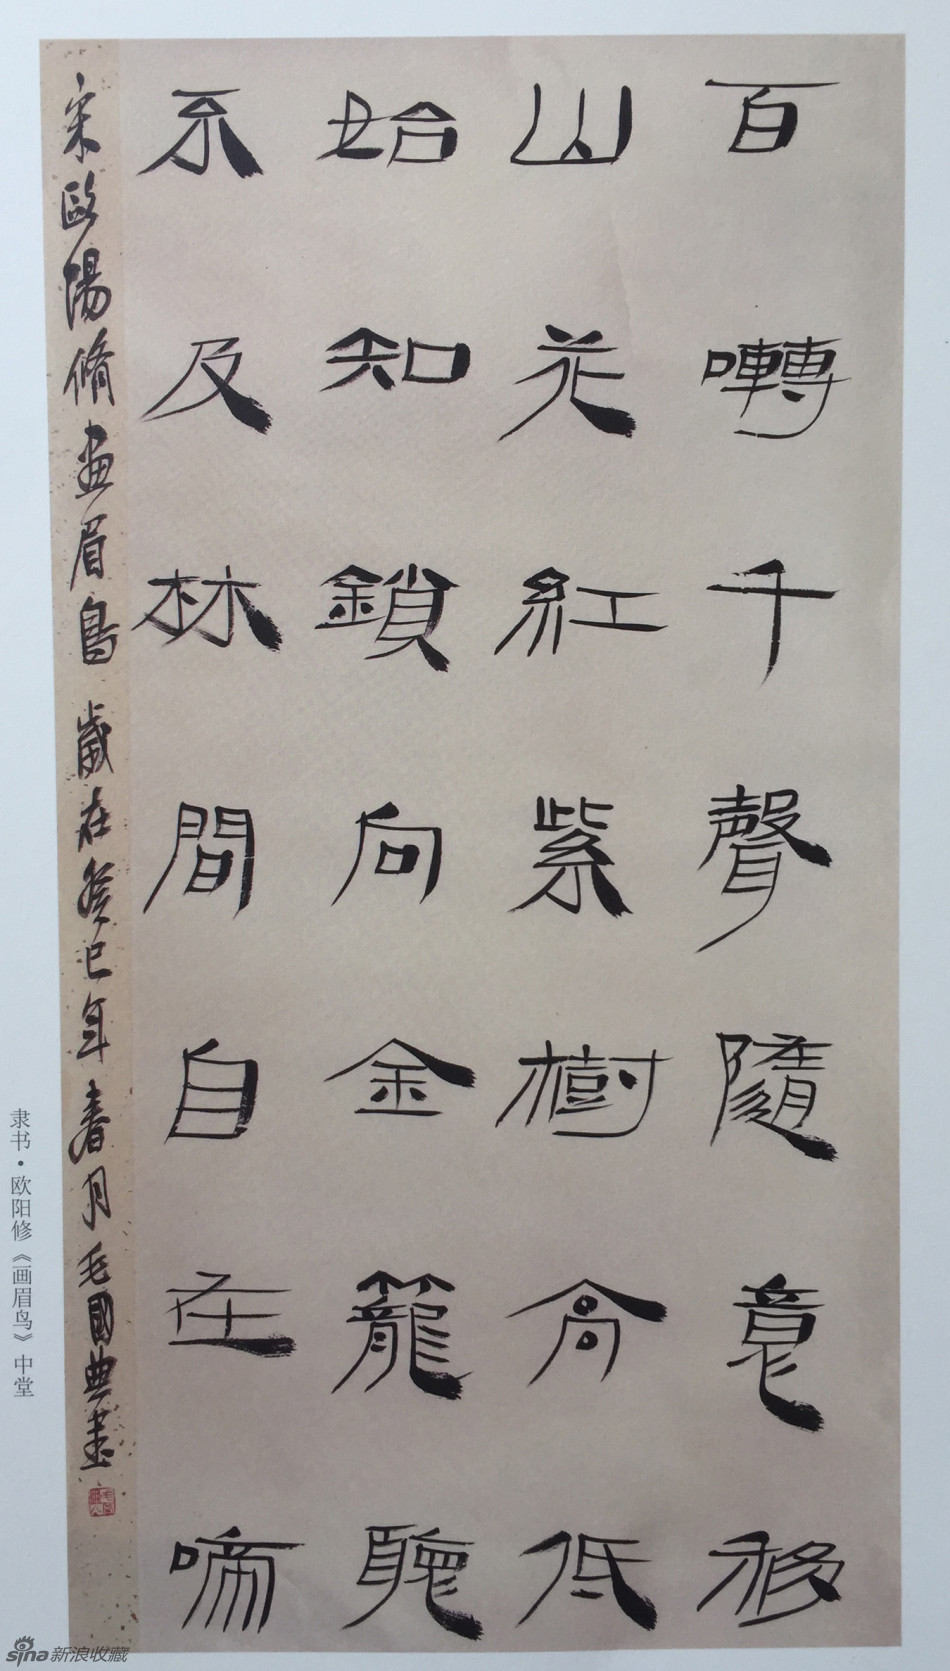 百囀千聲隨意移
山花紅紫樹高低
始知鎖向金籠聽
不及林間自在啼
宋歐陽脩畫眉鳥 歲在癸巳年春月毛國典書
隶书·欧阳修《画眉鸟》中堂
sina新浪收藏